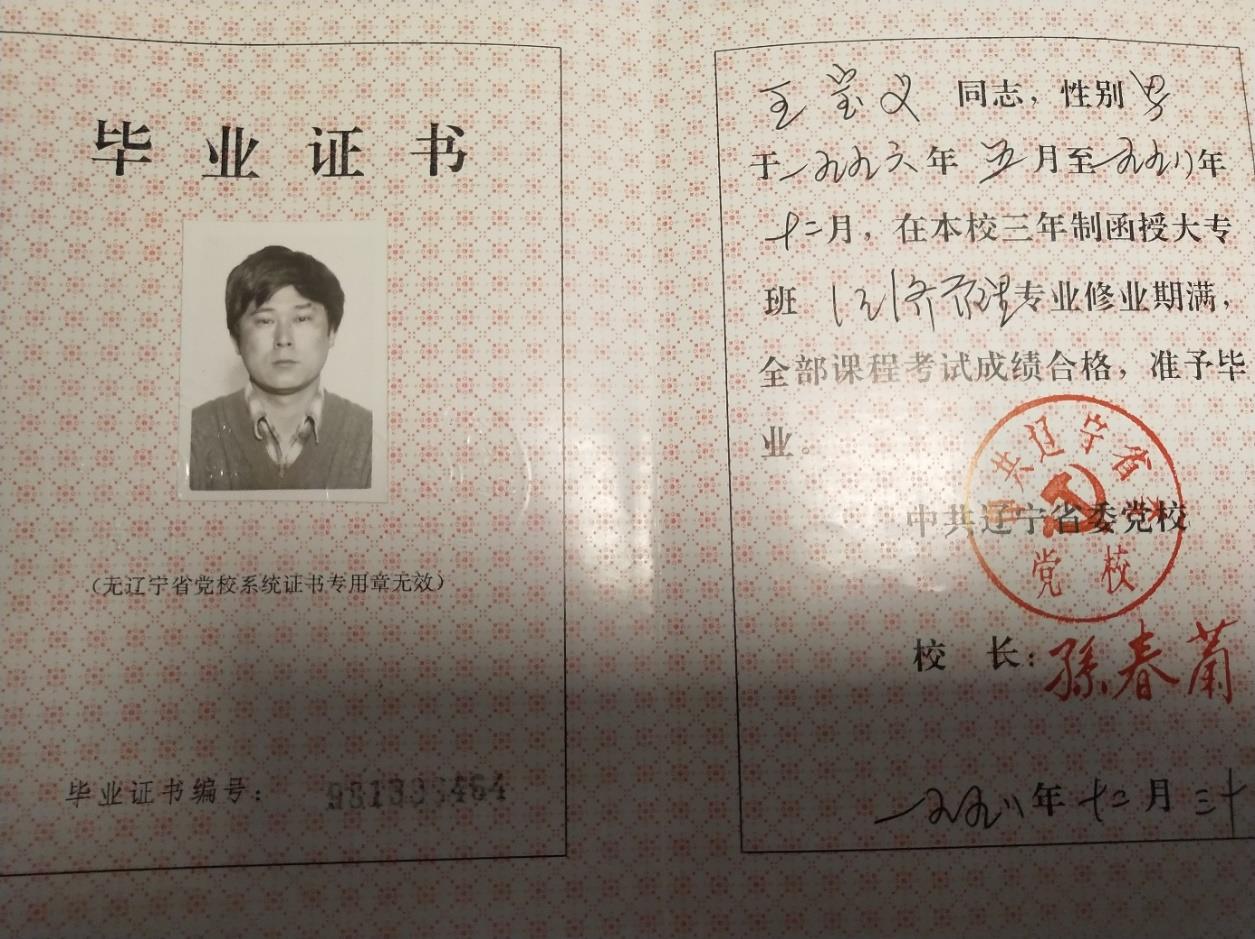 毕业证书
（无辽宁省党校系统证书专用章无效）
毕业证书编号：
王宝义 同志，性别 男
于一九九六年 五月至一九九八年
十二月，在本校三年制函授大专
班 经济管理专业修业期满，
全部课程考试成绩合格，准予毕
业。
中共辽宁省委党校
中共辽宁省委
党校
校 长：孫春蘭
一九九八年十二月三十